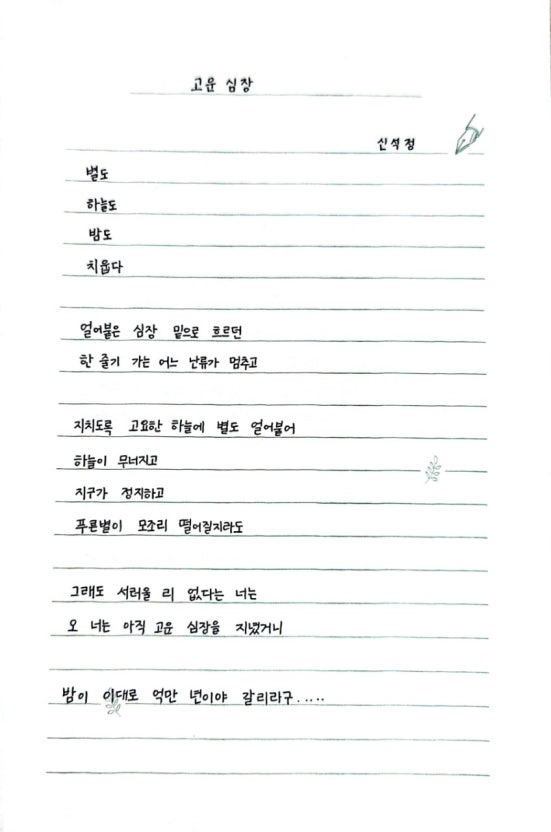 고운 심장
신석정
별도
하늘도
밤도
치웁다
얼어붙은 심장 밑으로 흐르던
한 줄기 가는 어느 난류가 멈추고
지치도록 고요한 하늘에 별도 얼어붙어
하늘이 무너지고
지구가 정지하고
푸른별이 모조리 떨어질지라도
그래도 서러울 리 없다는 너는
오 너는 아직 고운 심장을 지녔거니
밤이 이대로 억만 년이야 갈리라구.....